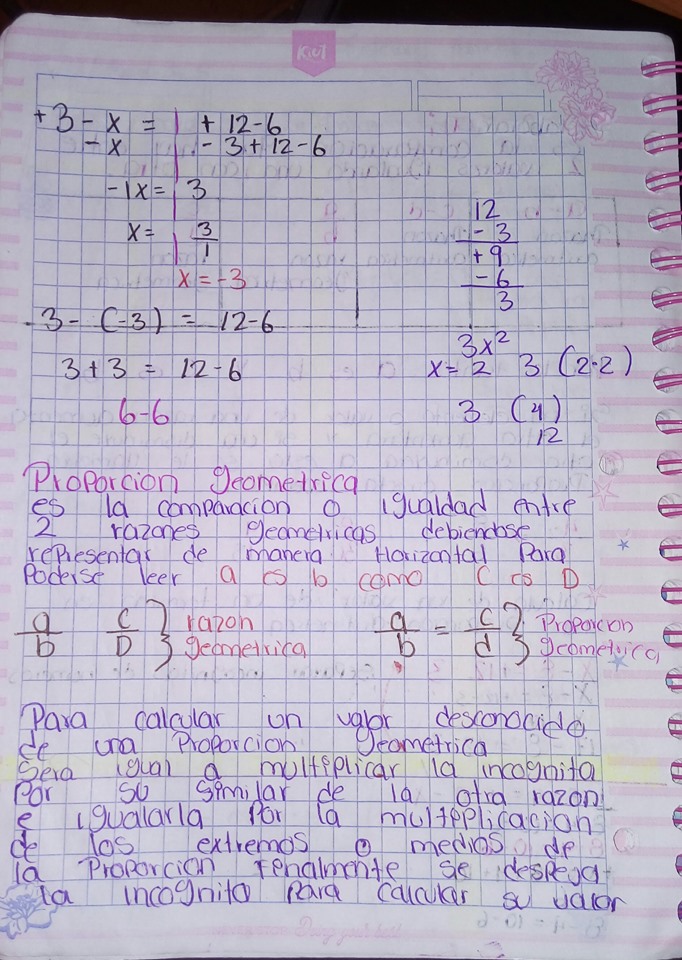 KIUT
+3 - x = + 12-6
- x - 3+12-6
-1x= 3
x= 3/1
x=-3
12
- 3
+9
- 6
3
3- (-3) = 12-6
3+3 = 12-6
6-6
3x²
x= 2 3 (2·2)
3 (4)
12
Proporcion geometrica
es la comparacion o igualdad entre
2 razones geometricas debiendose
representar de manera Horizontal Para
Poderse leer a es b como C es D
a/b c/D } razon geometrica
a/b = c/d } Proporcion geometrica
Para calcular un valor desconocido
de una Proporcion Geometrica
Sera igual a multiplicar la incognita
Por su similar de la otra razon
e igualarla Por la multeplicacion
de los extremos o medios de
la Proporcion fenalmente se despeja
la incognito Para calcular su valor